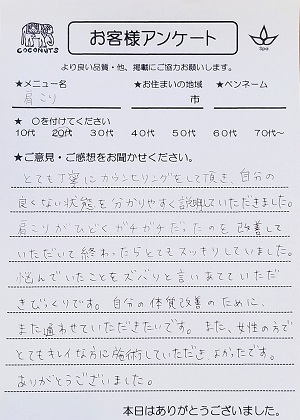 COCONUTS
お客様アンケート
Spa
より良い品質・他、掲載にご協力お願いします。
★メニュー名 ★お住まいの地域 ★ペンネーム
肩こり 市
★ 〇を付けてください
10代 20代 30代 40代 50代 60代 70代～
★ご意見・ご感想をお聞かせください。
とても丁寧にカウンセリングをして頂き、自分の
良くない状態を分かりやすく説明していただきました。
肩こりがひどくガチガチだったのを改善して
いただいて終わったらとてもスッキリしていました。
悩んでいたことをズバリと言いあてていただ
きびっくりです。自分の体質改善のために、
また通わせていただきたいです。また、女性の方で
とてもキレイな方に施術していただきよかったです。
ありがとうございました。
本日はありがとうございました。